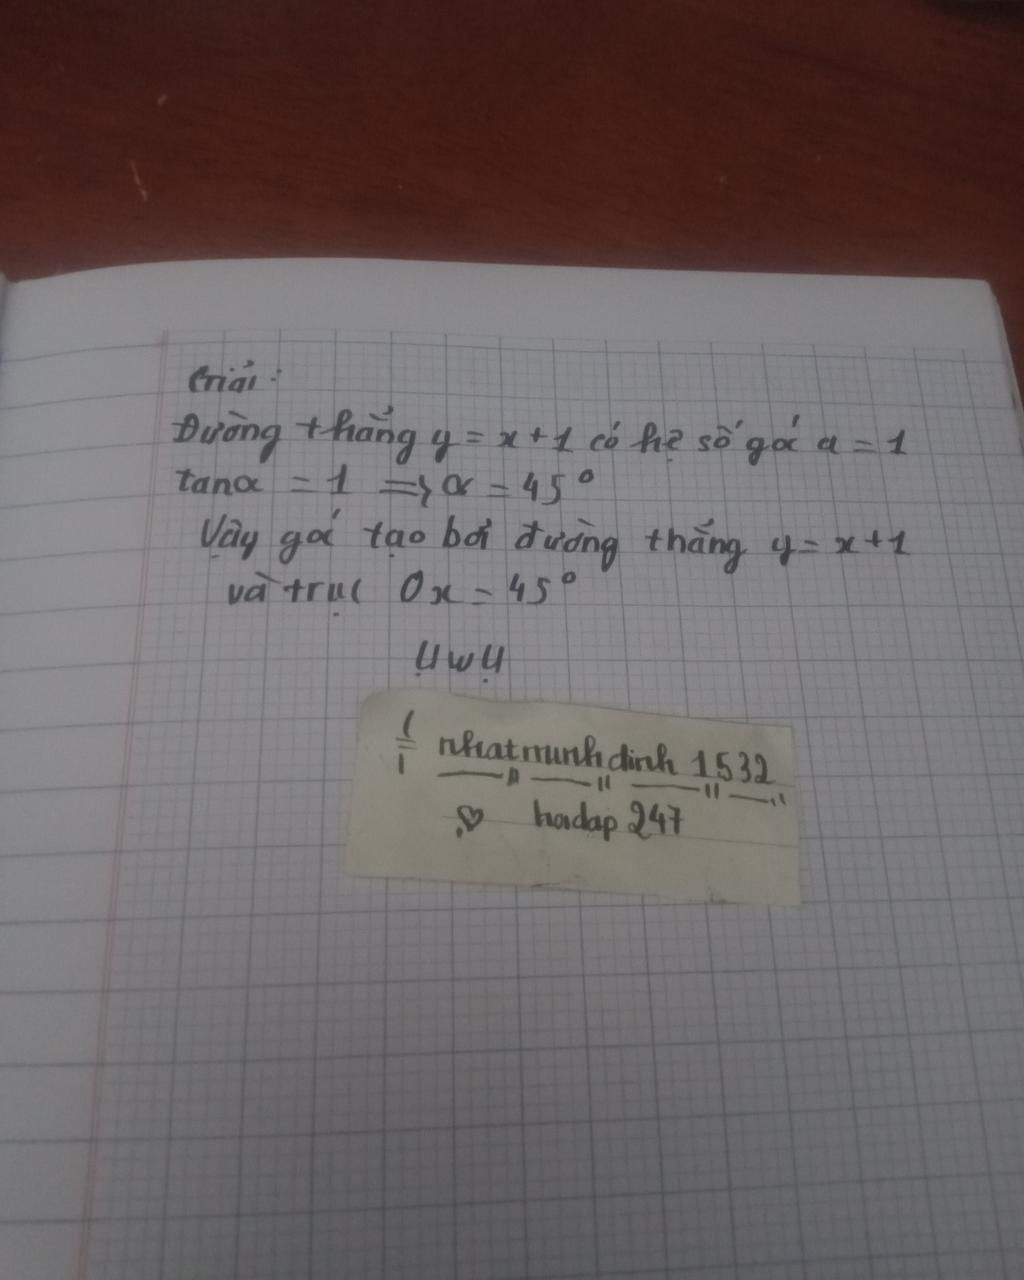 Giải :
Đường thẳng y = x + 1 có hệ số góc a = 1
tanα = 1 => α = 45°
Vậy góc tạo bởi đường thẳng y = x + 1
và trục Ox = 45°
UwU
nhatminhdinh 1532
hoidap 247